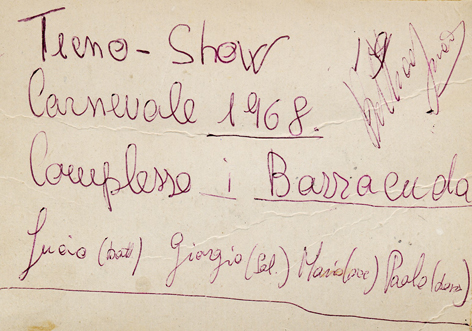 Treno - Show
Carnevale 1968.
Complesso i Barracuda
Lucio (batt) Giorgio (Sol.) Mario (org) Paolo